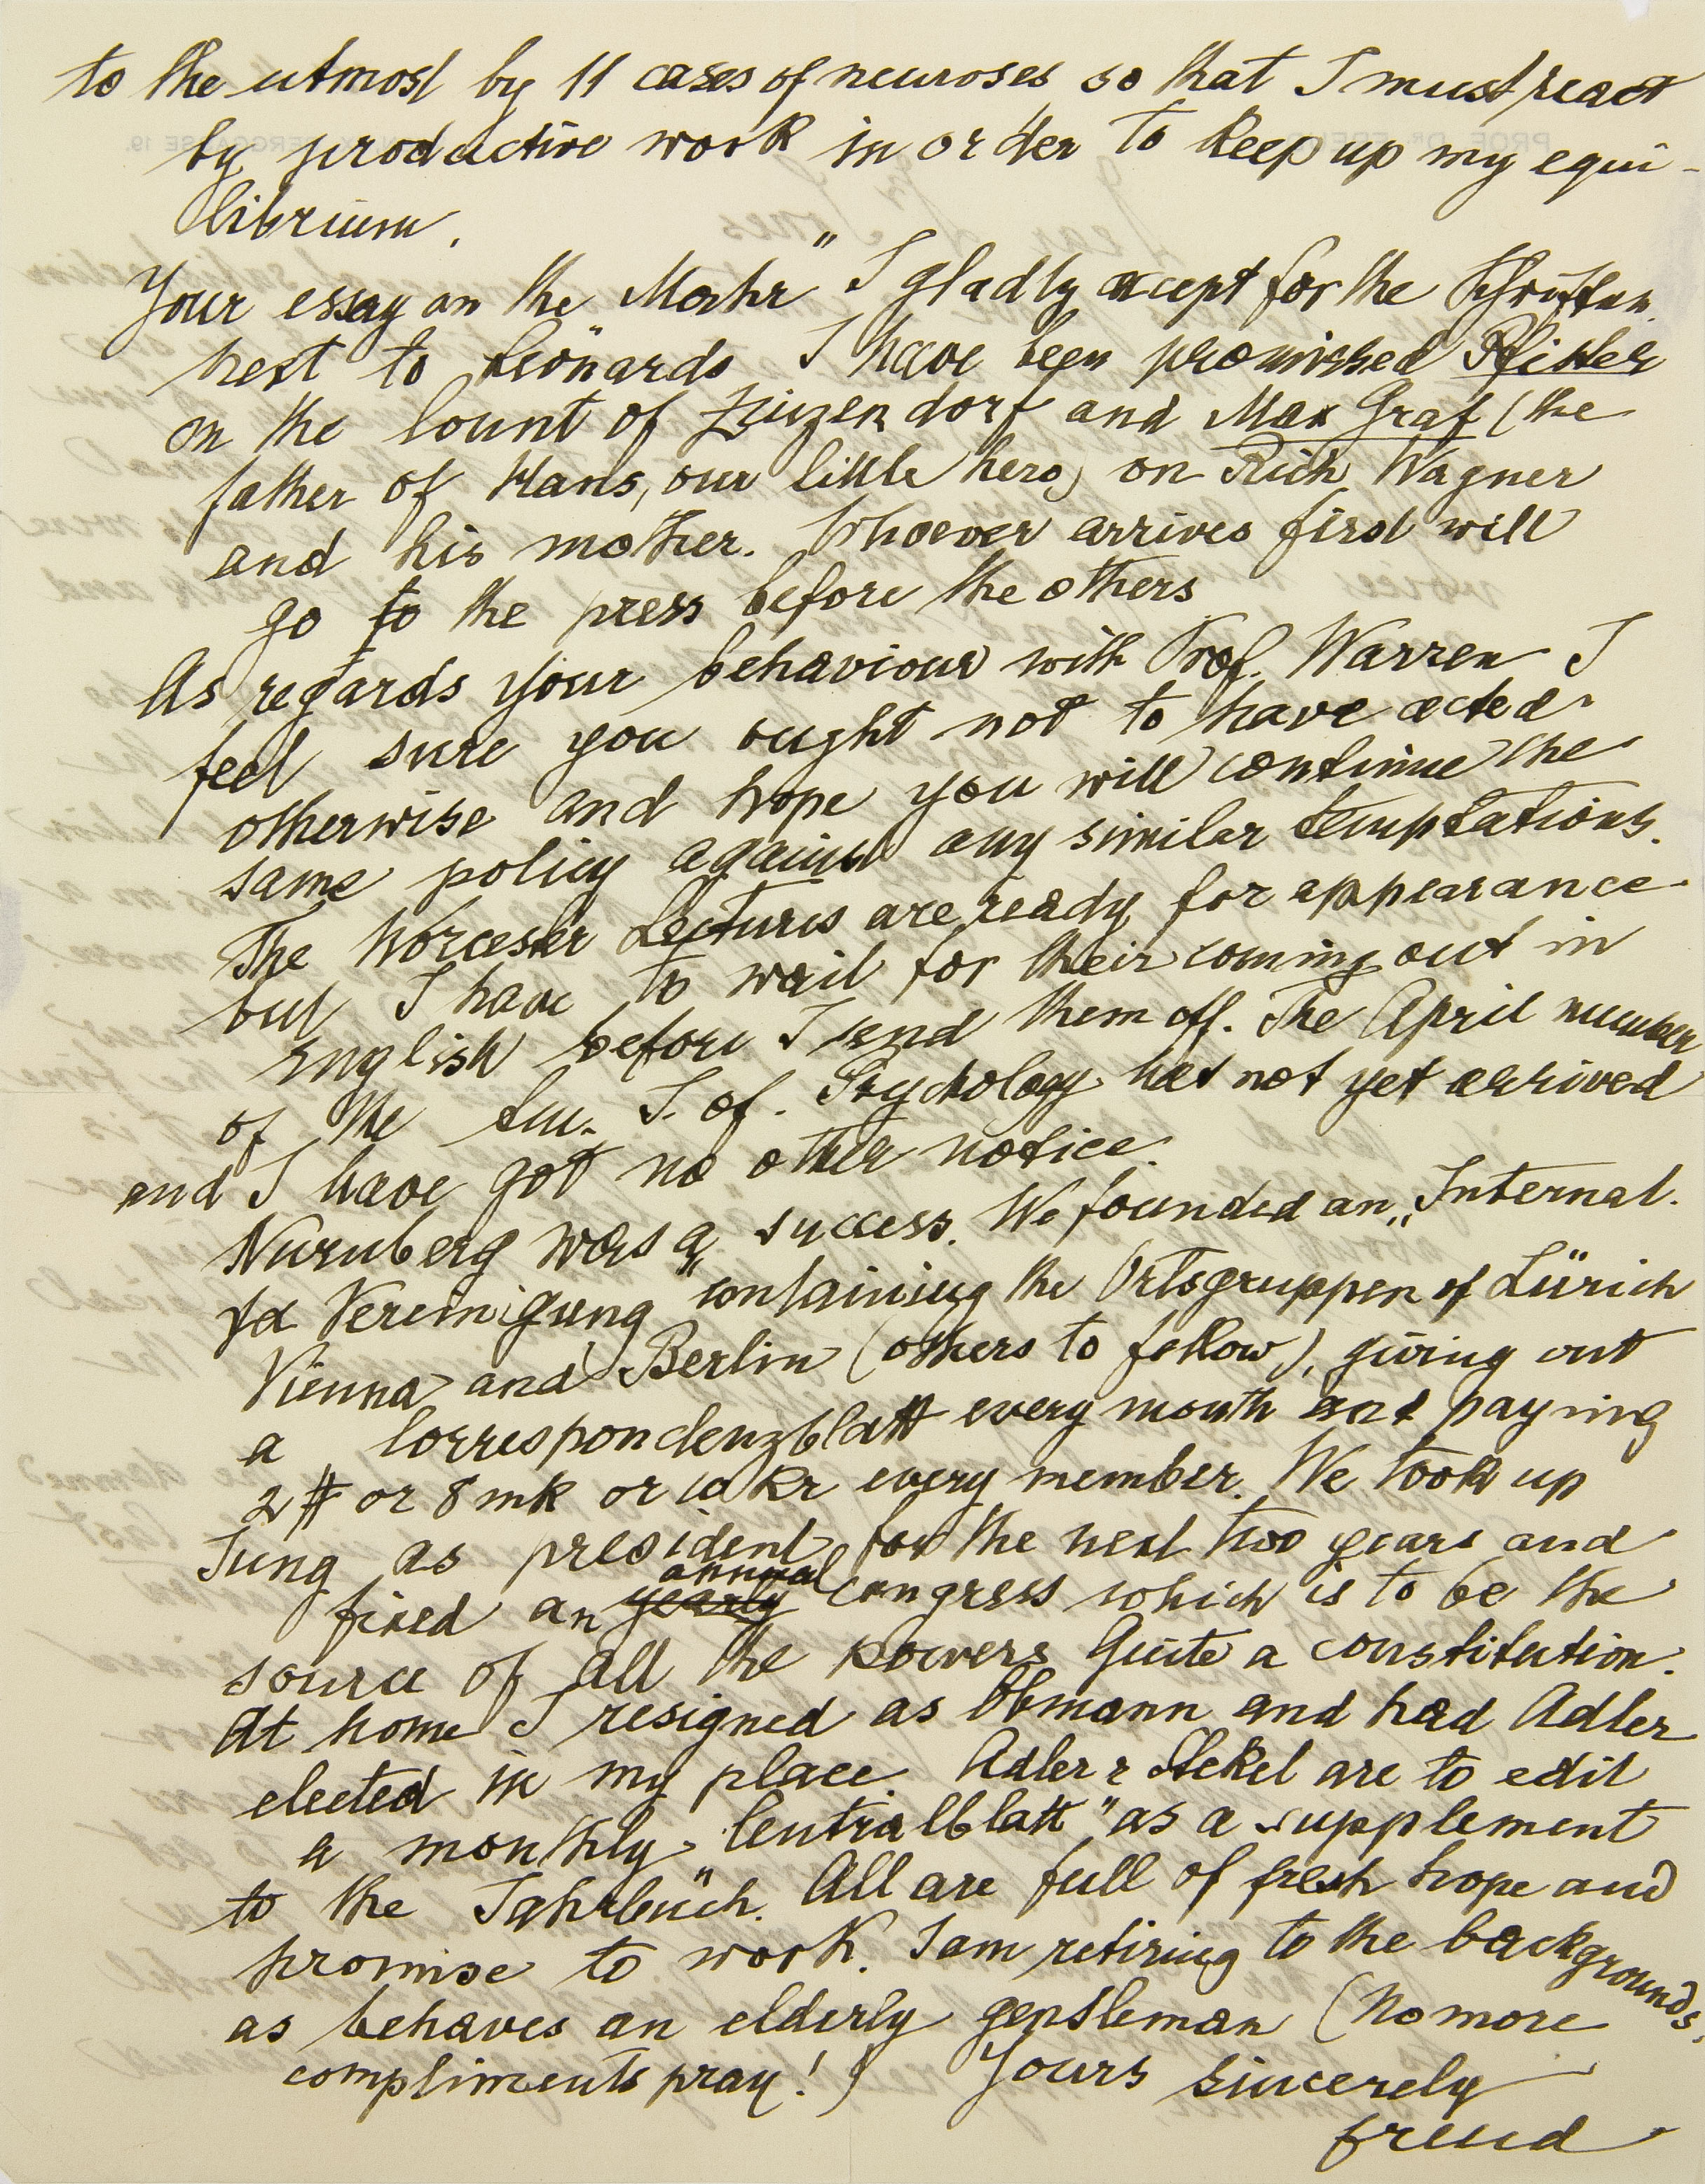 to the utmost by 11 cases of neuroses so that I must react
by productive work in order to keep up my equi-
librium.
Your essay on the Mahr" I gladly accept for the Schriften.
next to Leonardo I have been promished Pfister
on the Count of Zinzendorf and Max Graf (the
father of Hans, our little hero) on Rich Wagner
and his mother. Whoever arrives first will
go to the press before the others
As regards your behaviour with Prof. Warren I
feel sure you ought not to have acted
otherwise and hope you will continue the
same policy against any similar temptations.
The Worcester Lectures are ready for appearance
but I have to wait for their coming out in
English before I send them off. The April number
of the Am. J. of. Psychology has not yet arrived
and I have got no other notice.
Nurnberg was a success. We founded an „Internat.
ΨΑ Vereinigung" containing the Ortsgruppen of Zürich
Vienna and Berlin (others to follow), giving out
a Correspondenzblatt every month and paying
2 $ or 8 mk or 10 Kr every member. We took up
Jung as president for the next two years and
fixed an yearly annual congress which is to be the
source of all the powers Quite a constitution.
At home I resigned as Obmann and had Adler
elected in my place. Adler & Stekel are to edit
a monthly „Centralblatt" as a supplement
to the „Jahrbuch. All are full of fresh hope and
promise to work. I am retiring to the backgrounds,
as behaves an elderly gentleman (No more
compliments pray!) Yours sincerely
Freud
PROF. DR. FREUD
BERGGASSE 19.